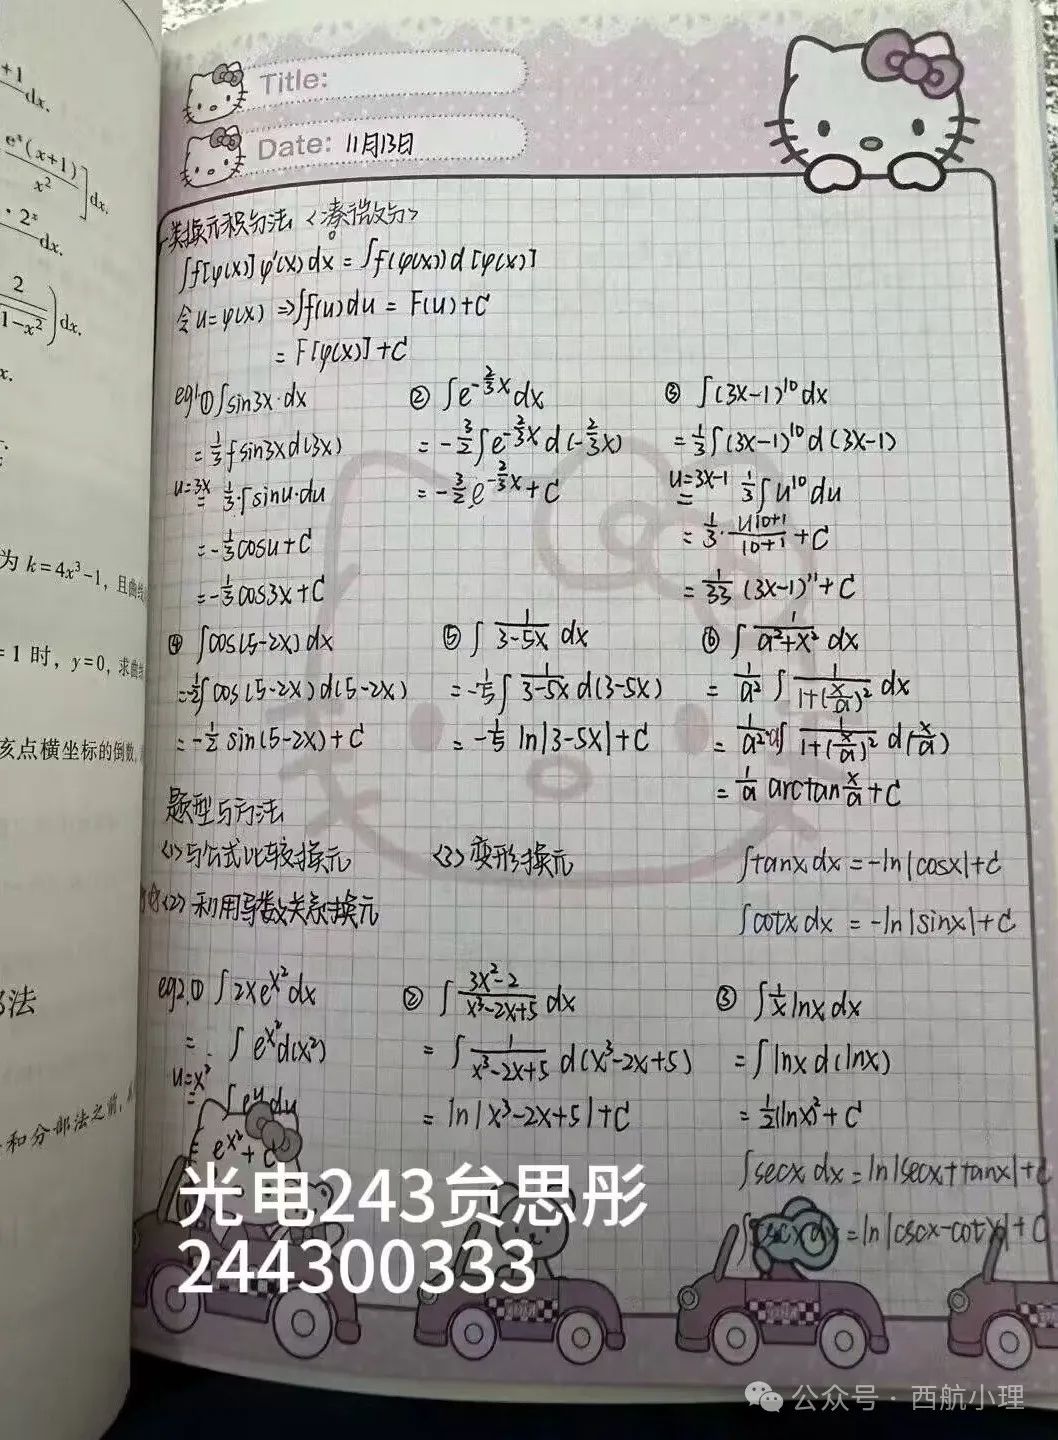 +1
dx.
eˣ(x+1)/x² ] dx.
· 2ˣ
dx.
2/√1-x² ) dx.
x.
为 k=4x³-1, 且曲线
=1 时, y=0, 求曲线
该点横坐标的倒数,
法
和分部法之前,
Title:
Date: 11月13日
一类换元积分法〈凑微分〉
∫f[φ(x)]φ'(x)dx = ∫f(φ(x))d[φ(x)]
令u=φ(x) ⇒∫f(u)du = F(u)+C
= F[φ(x)]+C
eg1 ①∫sin3x·dx
= 1/3∫sin3xd(3x)
u=3x = 1/3·∫sinu·du
= -1/3cosu+C
= -1/3cos3x+C
② ∫e^(-2/3x)dx
= -3/2∫e^(-2/3x)d(-2/3x)
= -3/2e^(-2/3x)+C
③ ∫(3x-1)¹⁰dx
= 1/3∫(3x-1)¹⁰d(3x-1)
u=3x-1 = 1/3∫u¹⁰du
= 1/3·u^(10+1)/(10+1)+C
= 1/33(3x-1)¹¹+C
④ ∫cos(5-2x)dx
= -1/2∫cos(5-2x)d(5-2x)
= -1/2sin(5-2x)+C
⑤ ∫1/(3-5x)dx
= -1/5∫1/(3-5x)d(3-5x)
= -1/5ln|3-5x|+C
⑥ ∫1/(a²+x²)dx
= 1/a²∫1/(1+(x/a)²)dx
= 1/a²·a∫1/(1+(x/a)²)d(x/a)
= 1/a arctan x/a+C
题型与方法
〈1〉与公式比较换元
〈2〉利用导数关系换元
〈3〉变形换元
∫tanxdx=-ln|cosx|+C
∫cotxdx=-ln|sinx|+C
eg2.① ∫2xe^(x²)dx
= ∫e^(x²)d(x²)
u=x² = ∫eᵘdu
= e^(x²)+C
② ∫(3x²-2)/(x³-2x+5)dx
= ∫1/(x³-2x+5)d(x³-2x+5)
= ln|x³-2x+5|+C
③ ∫1/x lnxdx
= ∫lnxd(lnx)
= 1/2(lnx)²+C
∫secxdx=ln|secx+tanx|+C
∫cscxdx=ln|cscx-cotx|+C
光电243贠思彤
244300333
公众号·西航小理